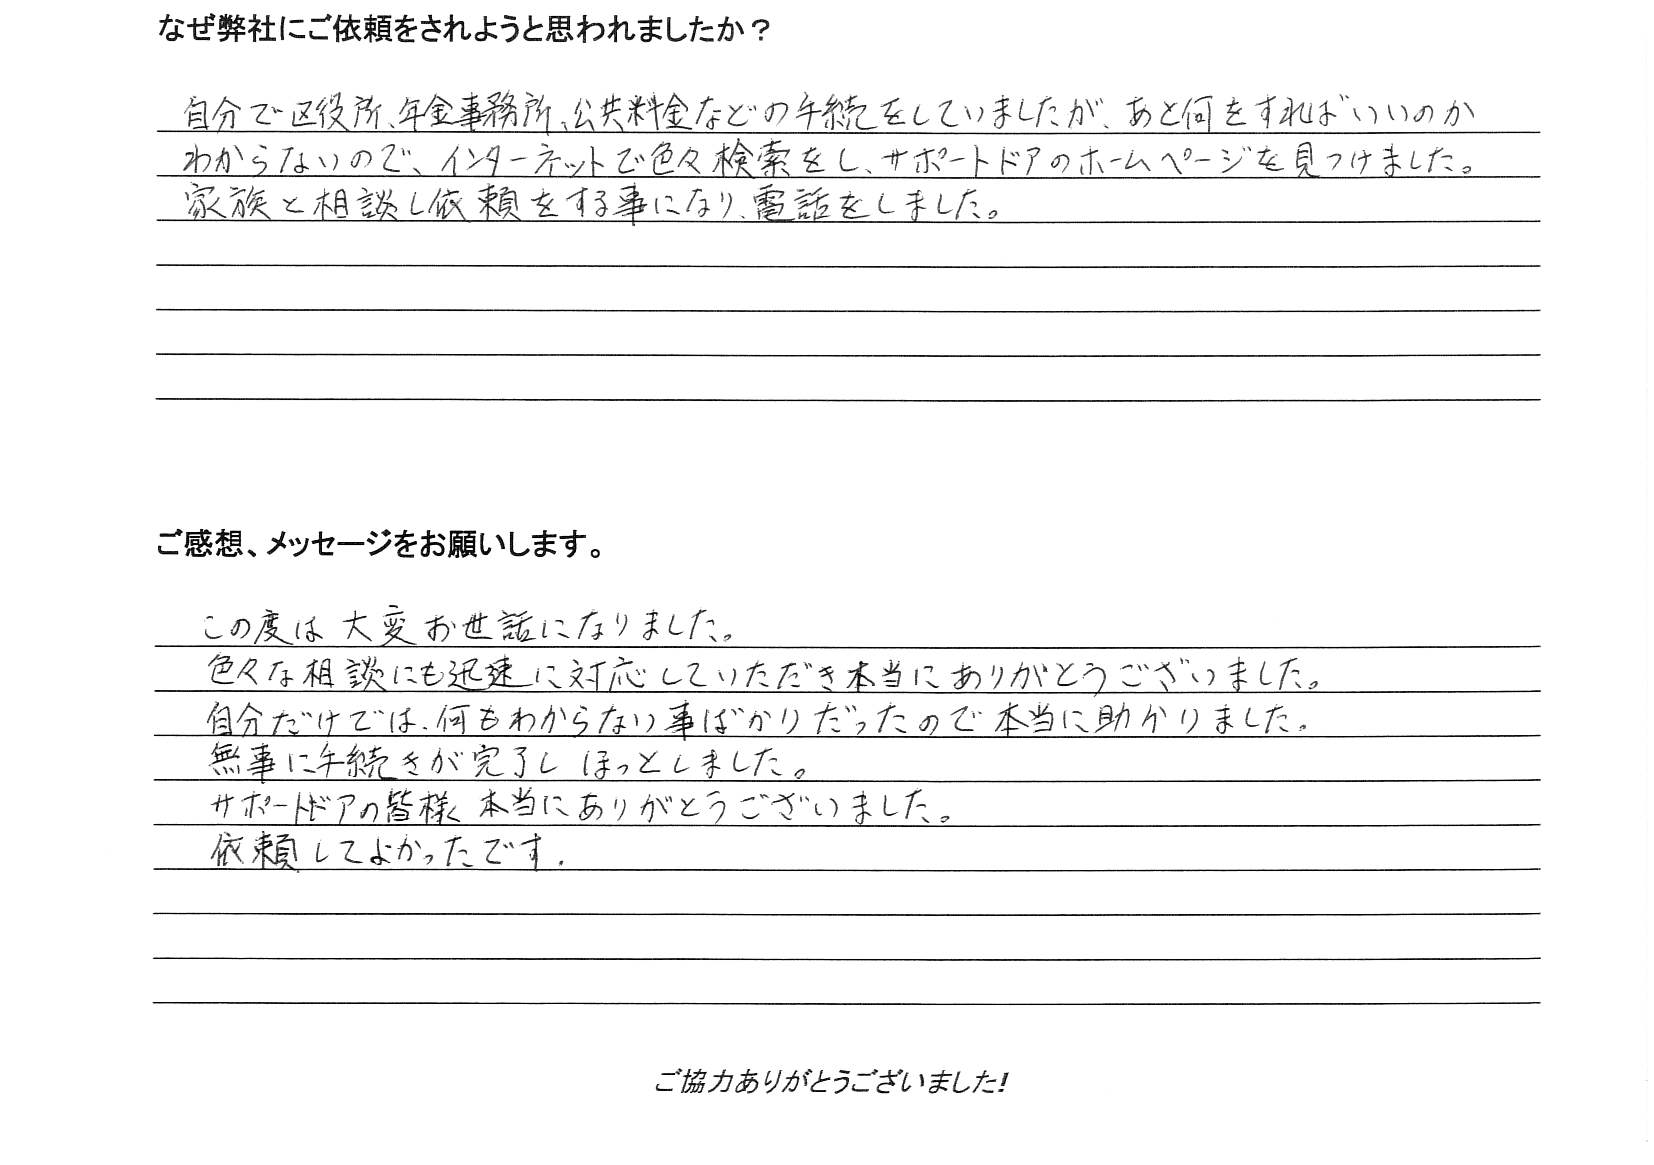 なぜ弊社にご依頼をされようと思われましたか？
自分で区役所、年金事務所、公共料金などの手続をしていましたが、あと何をすればいいのか
わからないので、インターネットで色々検索をし、サポートドアのホームページを見つけました。
家族と相談し依頼をする事になり、電話をしました。
ご感想、メッセージをお願いします。
この度は大変お世話になりました。
色々な相談にも迅速に対応していただき本当にありがとうございました。
自分だけでは、何もわからない事ばかりだったので本当に助かりました。
無事に手続きが完了しほっとしました。
サポートドアの皆様、本当にありがとうございました。
依頼してよかったです。
ご協力ありがとうございました!